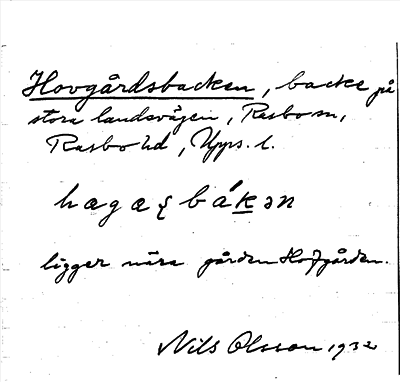 Hovgårdsbacken, backe på
stora landsvägen, Rasbo sn,
Rasbo hd, Upps. l.
ligger nära gården Hofgården.
Nils Olsson 1932